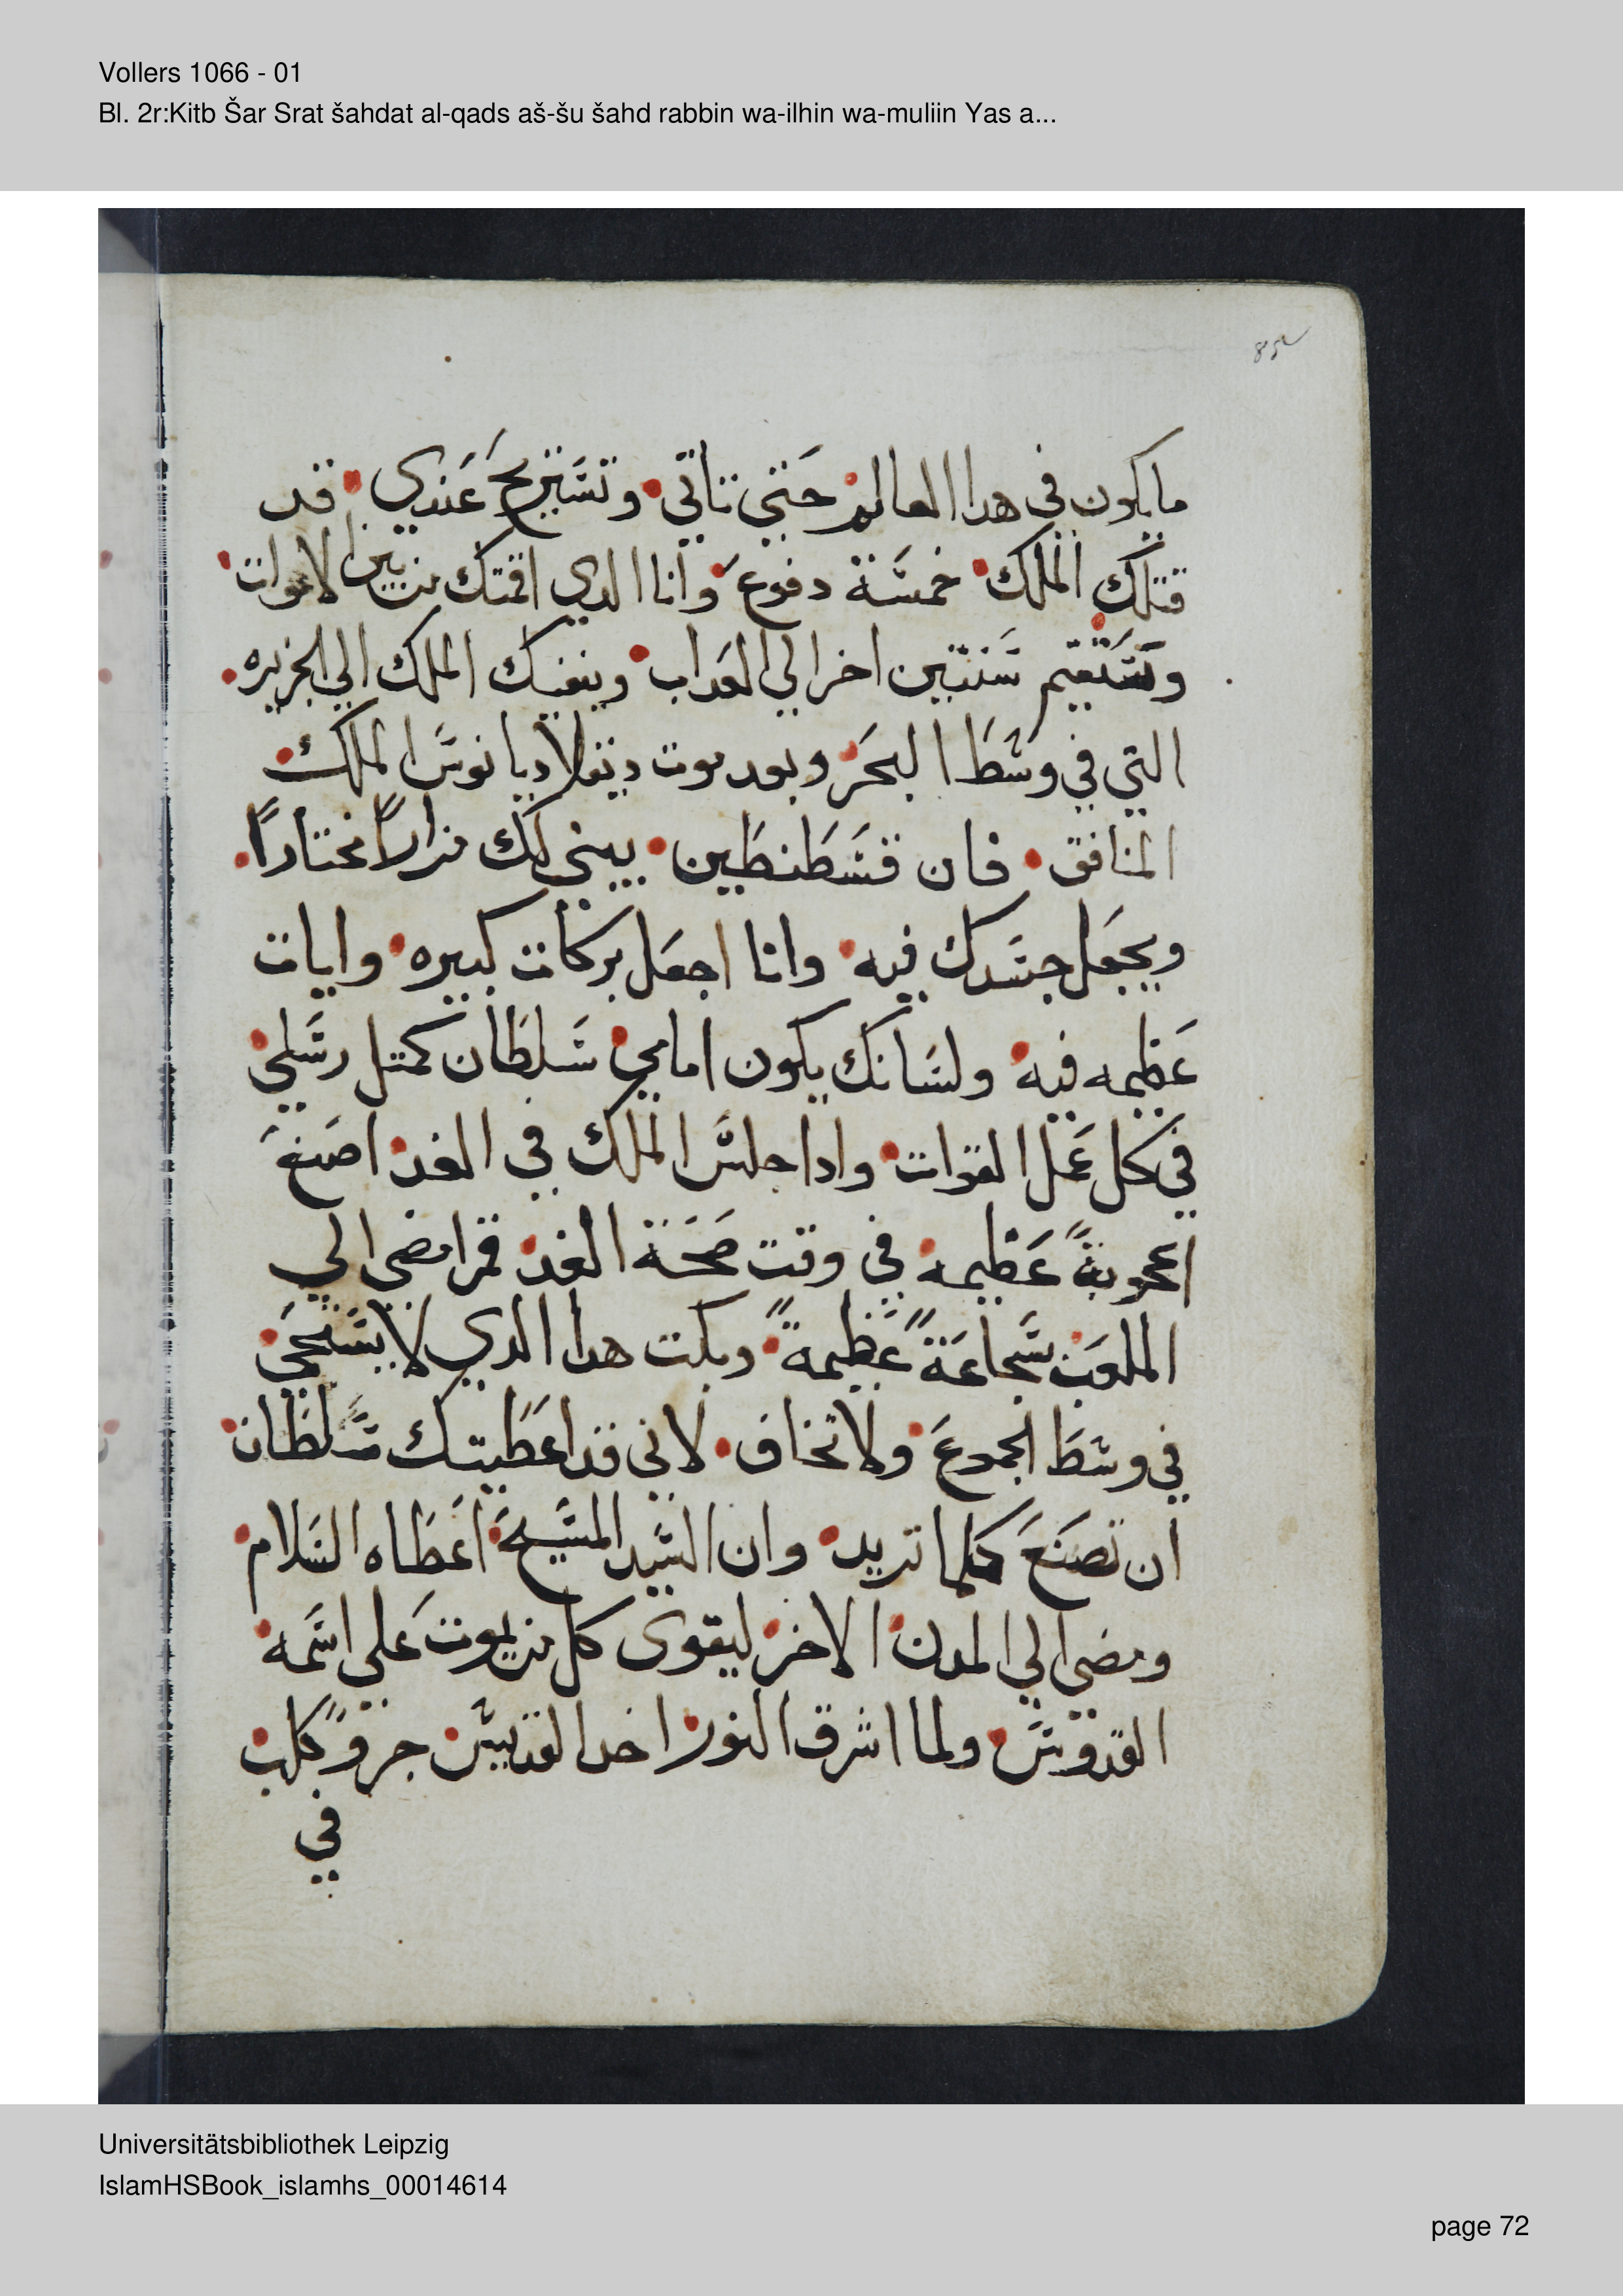 Vollers 1066 - 01
Bl. 2r:Kitb Šar Srat šahdat al-qads aš-šu šahd rabbin wa-ilhin wa-muliin Yas a...
مايكون في هدا العالم حتي تاتي وتستريح عندي قد
قتلك الملك خمسة دفوع وانا الدي اقمتك من بين الاموات
وستقيم سنتين اخر الي العداب وينفيك الملك الي الجزيره
التي في وسط البحر وبعد موت دقلاديانوس الملك
المنافق فان قسطنطين يبني لك مزاراً مختاراً
ويجعل جسدك فيه وانا اجعل بركات كبيره وايات
عظيمه فيه ولسانك يكون امامي سلطان كمتل رسلي
في كل عمل القوات وادا جلس الملك في الغد اصنع
اعجوبةً عظيمه في وقت صحة الغد قم امضي الي
الملعب بشجاعةً عظيمةً وبكت هدا الدي لا يستحي
في وسط الجموع ولا تخاف لاني قد اعطيتك سلطان
ان تصنع كلما تريد وان السيد المسيح اعطاه السلام
ومضي الي المدن الاخر ليقوي كل من يموت علي اسمه
القدوس ولما اشرق النور اخد القديس جروً كلب
في
Universitätsbibliothek Leipzig
IslamHSBook_islamhs_00014614
page 72